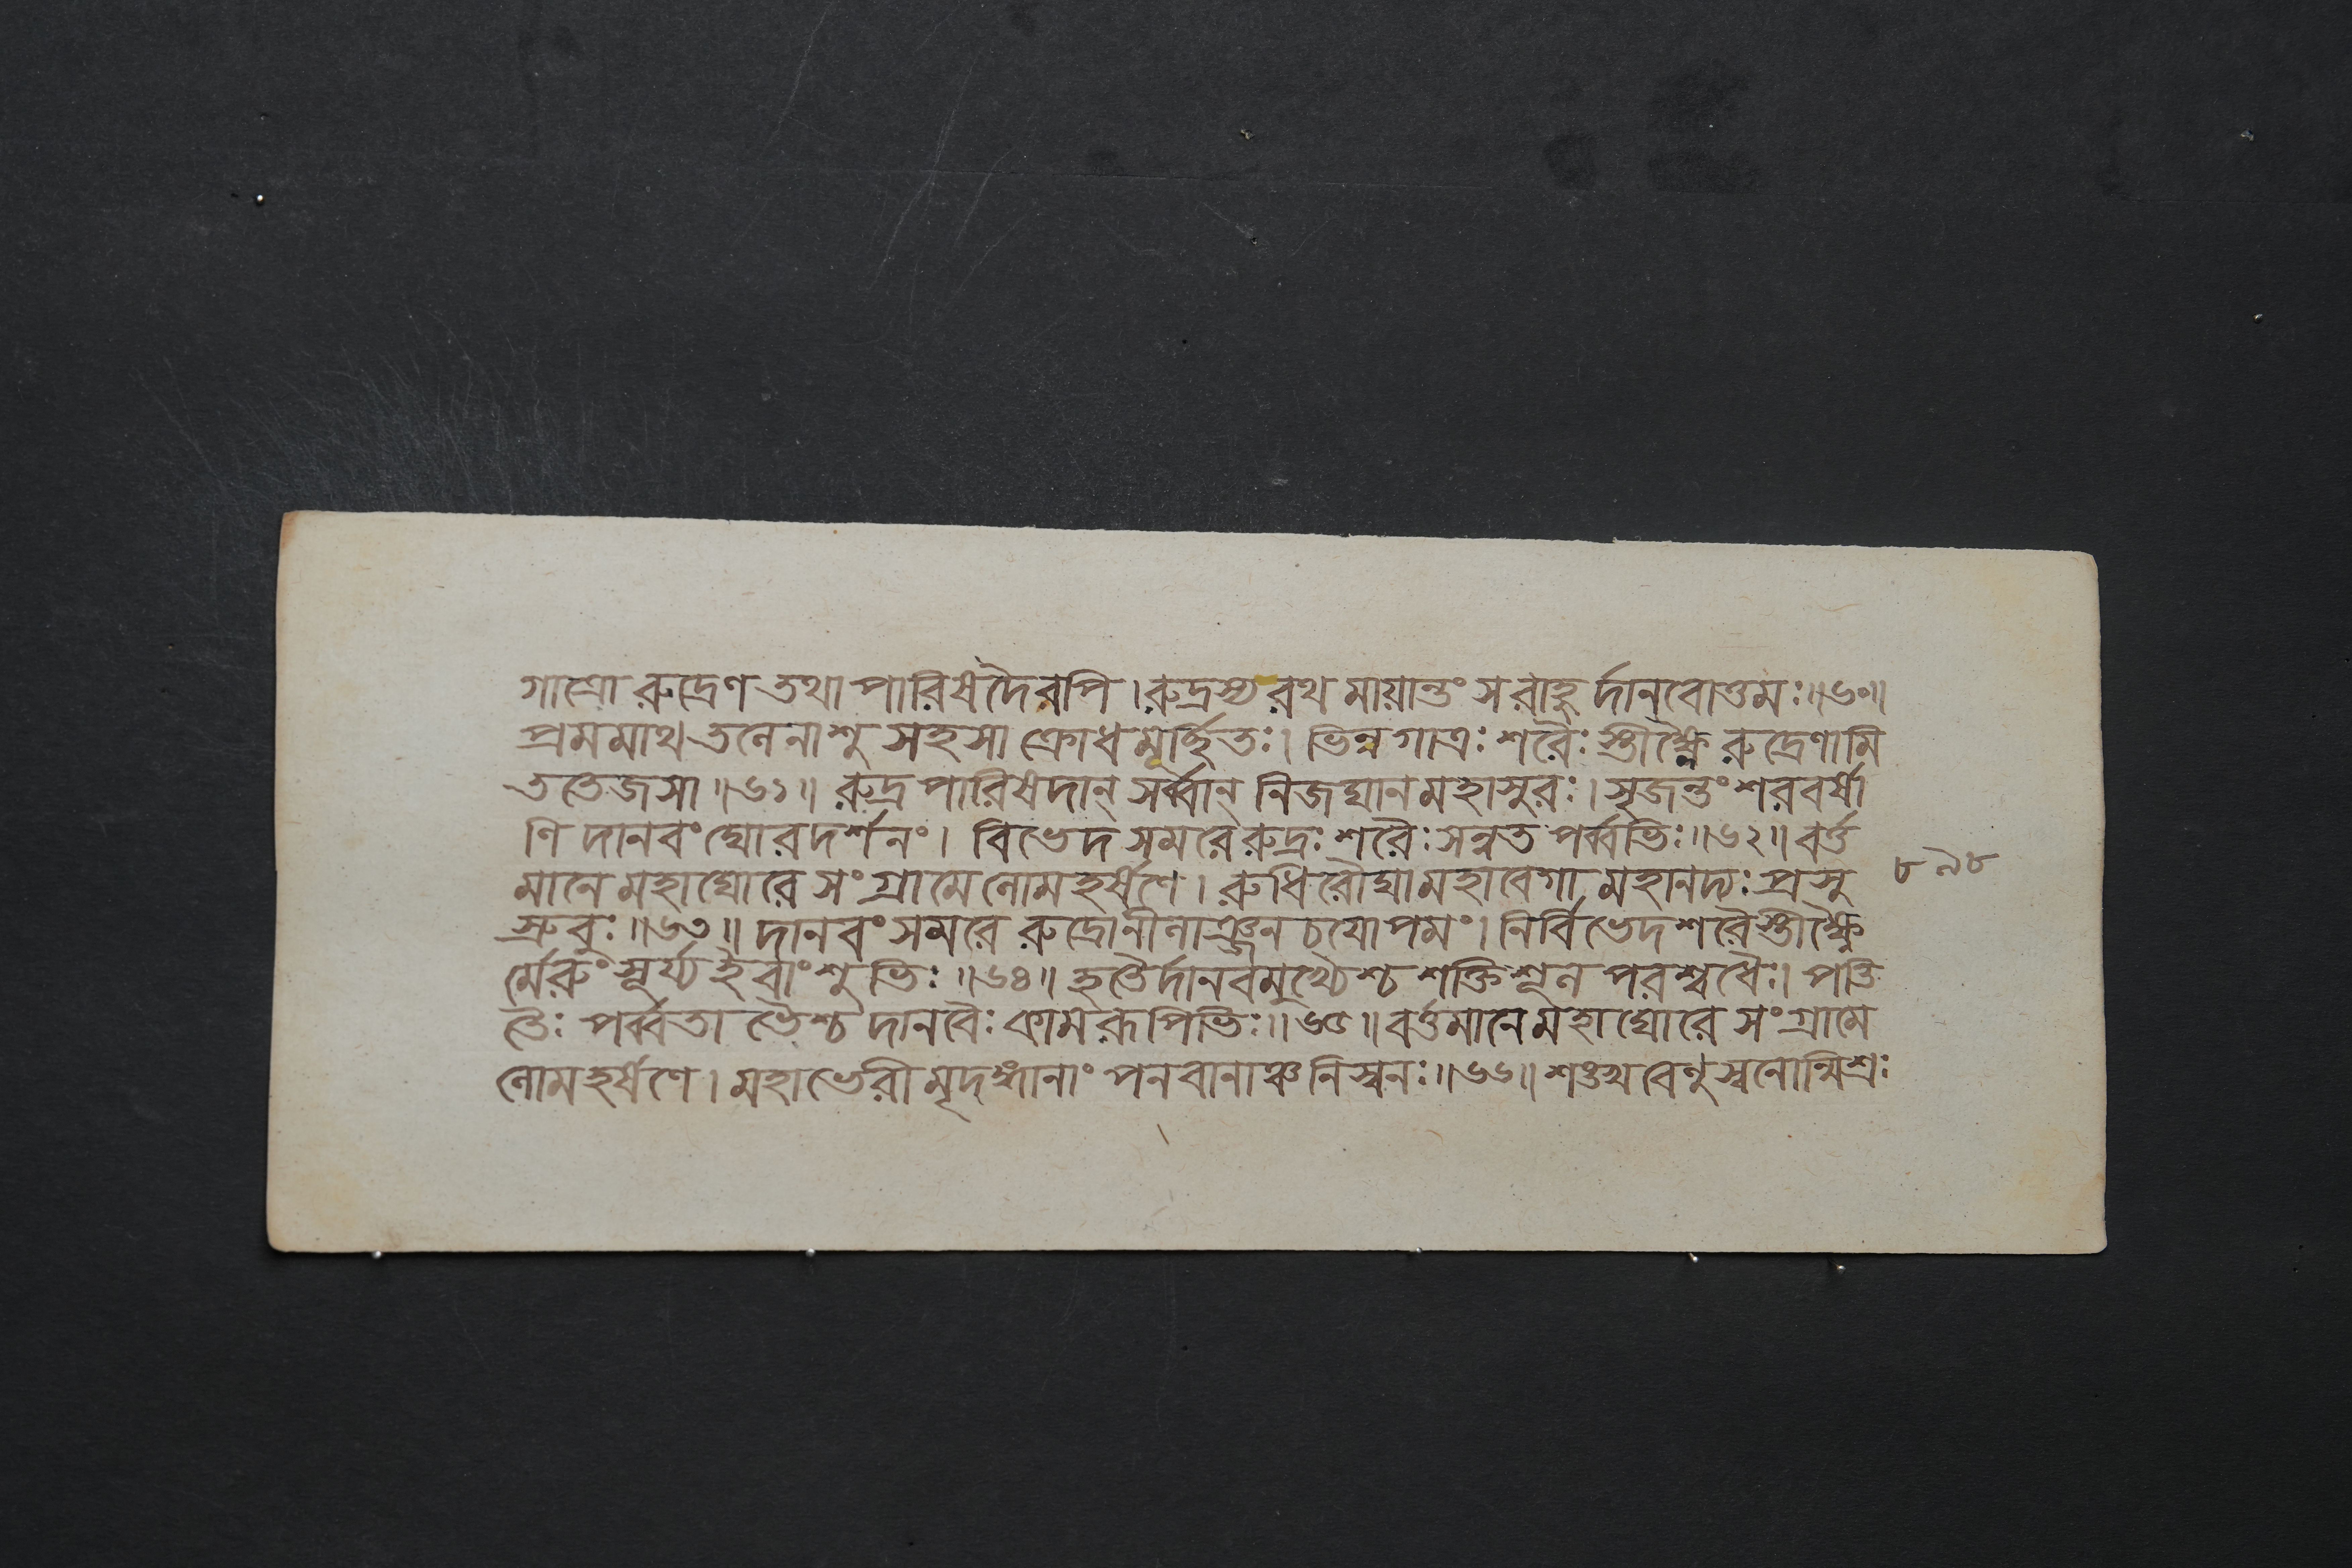 গাত্রো রুদ্রেণ তথা পারিষদৈরপি । রুদ্রস্য রথ মায়ান্তং স রাহু র্দানবোত্তমঃ॥৬০॥
প্রমমাথ তলেনাশু সহসা ক্রোধ মূর্চ্ছিতঃ। ভিন্ন গাত্রঃ শরৈঃ স্তীক্ষ্ণৈ রুদ্রেণামি
ততেজসা ॥৬১॥ রুদ্র পারিষদান্ সর্ব্বান্ নিজঘান মহাসুরঃ । সৃজন্তং শরবর্ষা
ণি দানবং ঘোরদর্শনং। বিভেদ সমরে রুদ্রঃ শরৈঃ সন্নত পর্ব্বভিঃ॥৬২॥ বর্ত্ত
মানে মহাঘোরে সংগ্রামে লোমহর্ষণে । রুধিরৌঘা মহাবেগা মহানদ্যঃ প্রসু
স্রুবুঃ॥৬৩॥ দানবং সমরে রুদ্রোনীলাঞ্জন চয়োপমং। নির্বিভেদ শরৈস্তীক্ষ্ণৈ
র্মেরুং সূর্য্য ইবাংশুভিঃ ॥৬৪॥ হতৈর্দানবমুখ্যৈশ্চ শক্তিশূল পরশ্বধৈঃ। পতি
তৈঃ পর্ব্বতা ভৈশ্চ দানবৈঃ কামরূপিভিঃ॥৬৫॥ বর্ত্তমানে মহাঘোরে সংগ্রামে
লোমহর্ষণে । মহাভেরী মৃদঙ্গানাং পনবানাঞ্চ নিস্বনঃ॥৬৬॥ শঙ্খ বেণু স্বনোন্মিশ্রঃ
৮৯৮